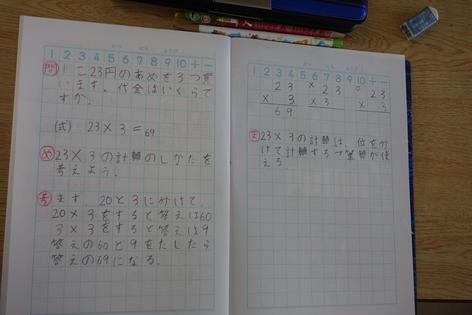 1 2 3 4 5 6 7 8 9 10 + −
問 1こ23円のあめを3つ買
います。代金はいくらで
すか。
(式) 23×3=69
め 23×3の計算のしかたを
考えよう。
考 まず、20と3に分けて、
20×3をすると答えは60
3×3をすると答えは9
答えの60と9をたしたら
答えの69になる。
1 2 3 4 5 6 7 8 9 10 + −
23 × 23 ○ 23
×3 ×3 ×3
69
ま 23×3の計算は、位を分
けて計算する→筆算が使
える